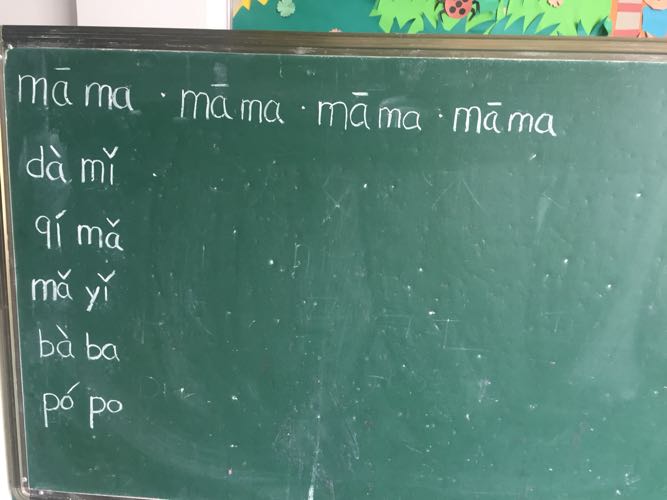 māma · māma · māma · māma
dà mǐ
qí mǎ
mǎ yǐ
bà ba
pó po